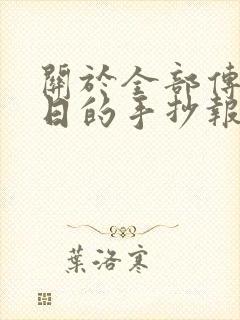 關於全部傳
日的手抄報
葉洛寒